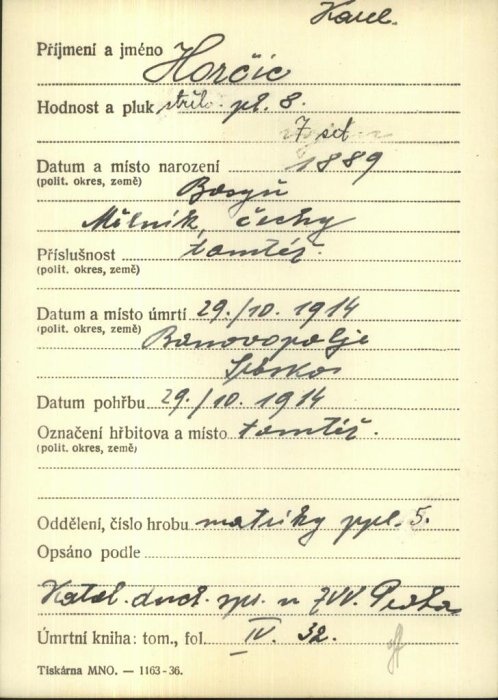 Karel.
Příjmení a jméno Horčic
Hodnost a pluk střel. pl. 8.
7 set
Datum a místo narození 1889
(polit. okres, země) Bosyň
Mělník, Čechy
Příslušnost tamtéž.
(polit. okres, země)
Datum a místo úmrtí 29./10. 1914
(polit. okres, země) Banovopolje
Srbsko
Datum pohřbu 29./10. 1914
Označení hřbitova a místo tamtéž.
(polit. okres, země)
Oddělení, číslo hrobu matriky ppl. 5.
Opsáno podle
Katol. duch. spr. u ZVV. Praha
Úmrtní kniha: tom., fol. IV. 32.
Tiskárna MNO. — 1163-36.